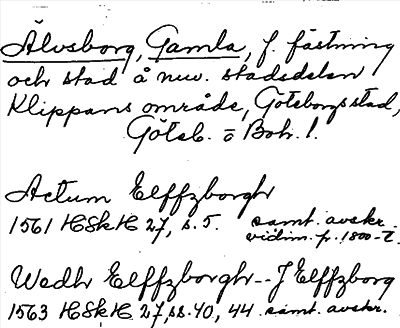 Älvsborg, Gamla, f. fästning
och stad å nuv. stadsdelen
Klippans område, Göteborgs stad,
Göteb. o Boh. l.
Actum Elffzborgh
1561 HSkH 27, s. 5. samt. avskr.
vidim. fr. 1800-t.
Wedh Elffzborgh -- J Elffzborg
1563 HSkH 27, ss. 40, 44 samt. avskr.